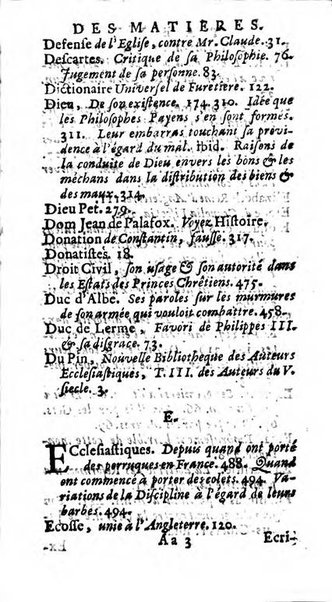 DES MATIERES.
Defense de l'Eglise, contre Mr. Claude. 31.
Descartes. Critique de sa Philosophie. 76.
Jugement de sa personne. 83.
Dictionaire Universel de Furetiere. 122.
Dieu, De son existence. 174. 310. Idée que
les Philosophes Payens s'en sont formés.
311. Leur embarras touchant sa provi-
dence à l'égard du mal. ibid. Raisons de
la conduite de Dieu envers les bons & les
méchans dans la distribution des biens &
des maux. 314.
Dieu Pet. 279.
Dom Jean de Palafox. Voyez Histoire.
Donation de Constantin, fausse. 317.
Donatistes. 18.
Droit Civil, son usage & son autorité dans
les Estats des Princes Chrétiens. 475.
Duc d'Albe. Ses paroles sur les murmures
de son armée qui vouloit combattre. 458.
Duc de Lerme, Favori de Philippes III.
& sa disgrace. 73.
Du Pin, Nouvelle Bibliotheque des Auteurs
Ecclesiastiques, T. III. des Auteurs du V.
siecle. 3.
E.
Ecclesiastiques. Depuis quand ont porté
des perruques en France. 488. Quand
ont commencé à porter des colets. 494. Va-
riations de la Discipline à l'égard de leurs
barbes. 494.
Ecosse, unie à l'Angleterre. 120.
Aa 3 Ecri-